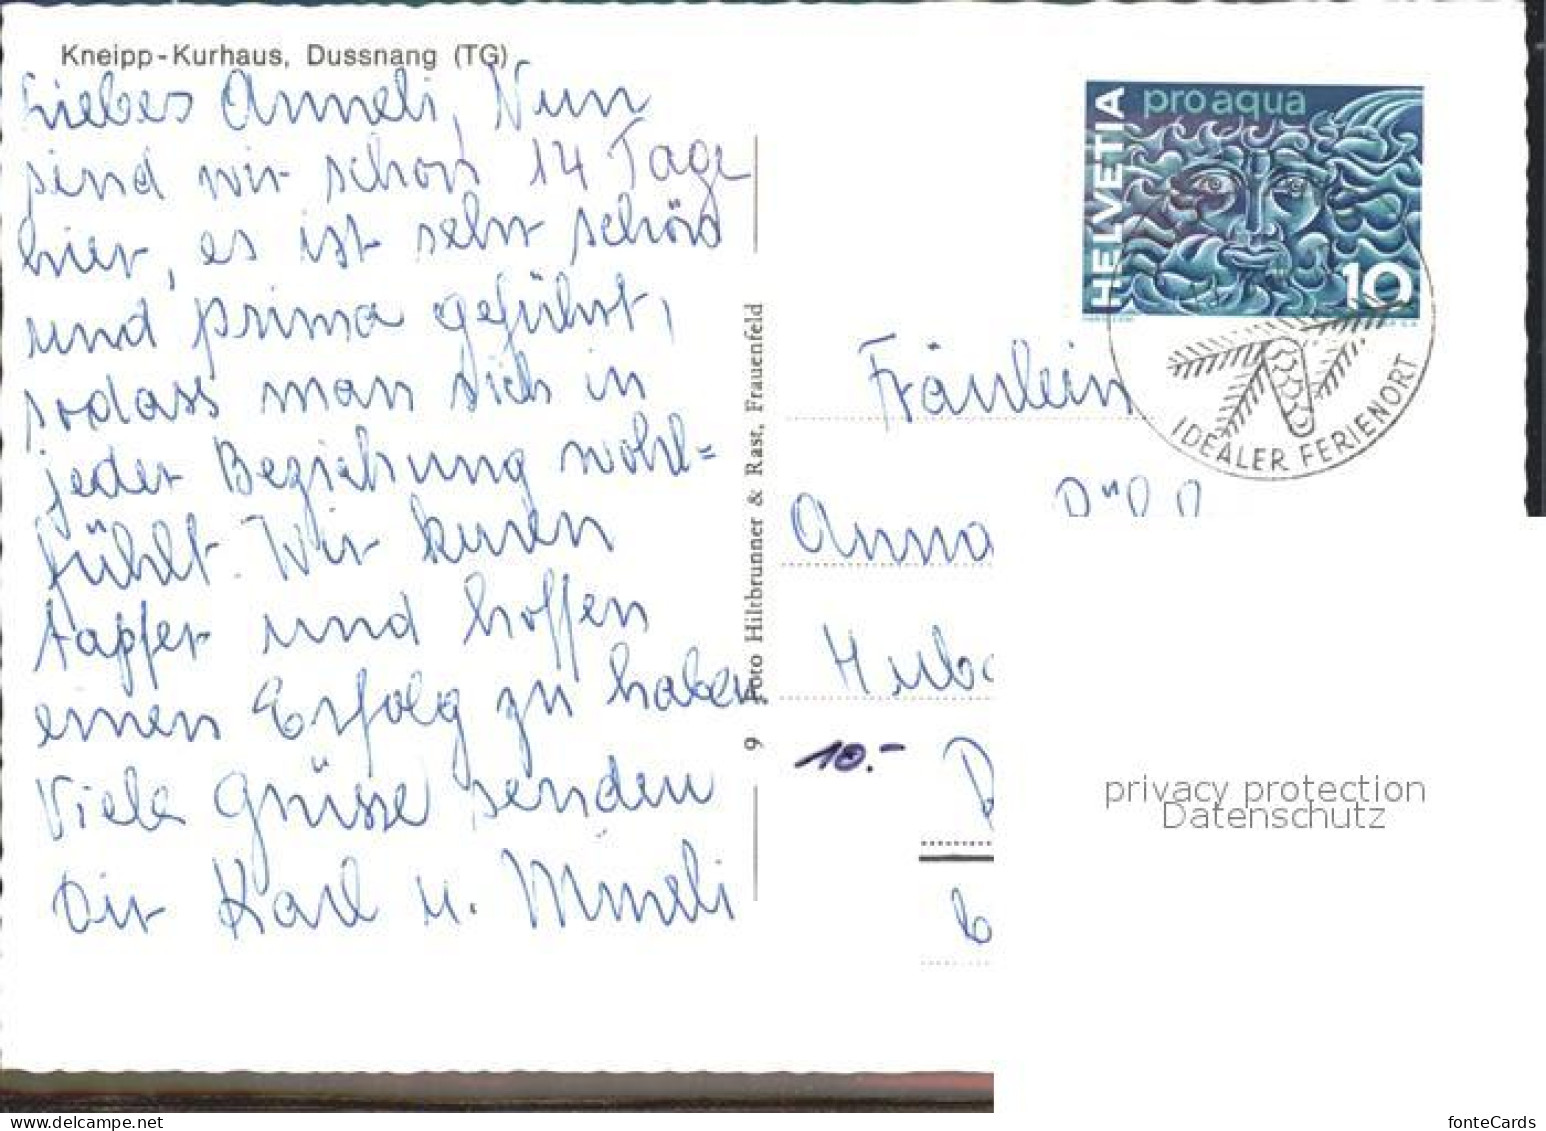 Kneipp-Kurhaus, Dussnang (TG)
Liebes Anneli, Nun
sind wir schon 14 Tage
hier, es ist sehr schön
und prima geführt,
sodass man sich in
jeder Beziehung wohl=
fühlt. Wir kuren
tapfer und hoffen
einen Erfolg zu haben
Viele Grüsse senden
Dir Karl u. Mineli
9 Foto Hiltbrunner & Rast, Frauenfeld
HELVETIA
pro aqua
10
IDEALER FERIENORT
Fräulein
Anna
10.-
privacy protection
Datenschutz
www.delcampe.net
fonteCards